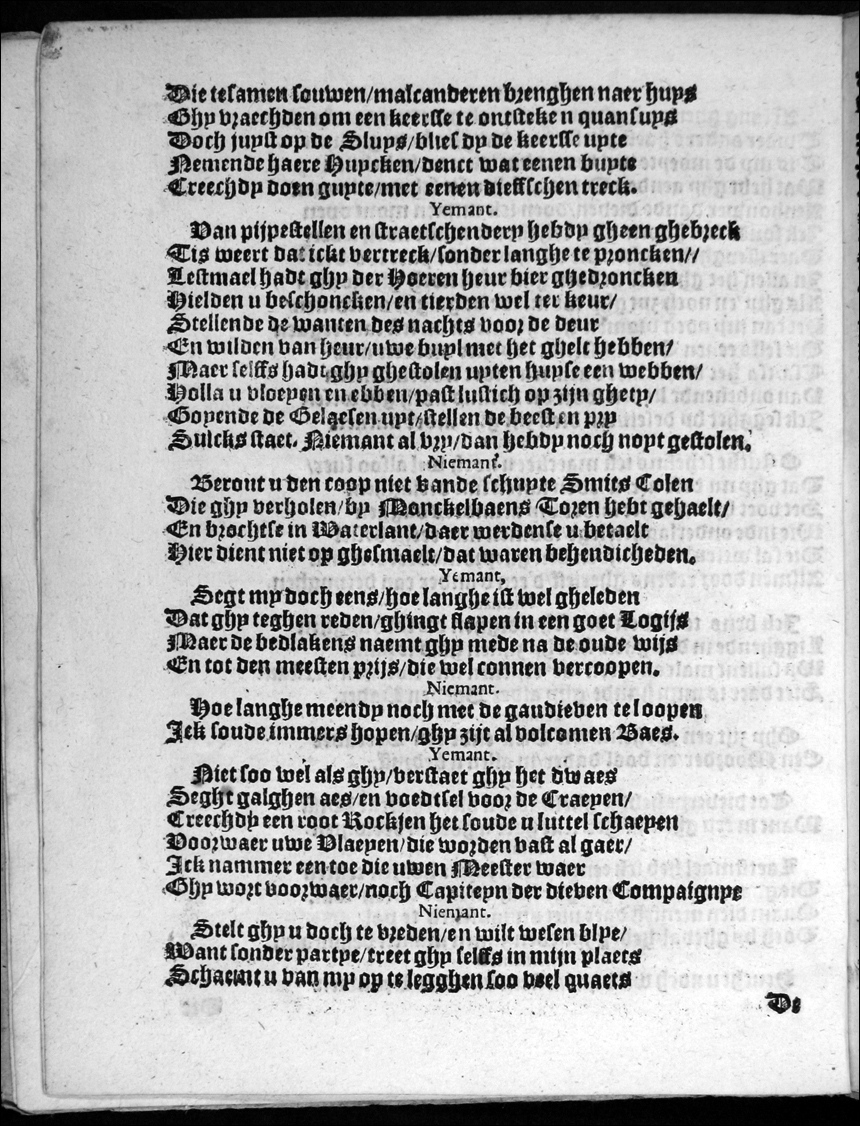 Die tesamen souwen/malcanderen brenghen naer huys
Ghy vraechden om een keersse te ontsteken quansuys
Doch juyst op de Sluys/blies dy de keersse uyte
Nemende haere Huycken/denct wat eenen buyte
Creechdy doen guyte/met eenen dieffschen treck.
Yemant.
Van pijpestellen en straetschendery hebdy gheen ghebreck
Tis weert dat ickt vertreck/sonder langhe te proncken//
Lestmael hadt ghy der Hoeren heur bier ghedroncken
Hielden u beschoncken/en tierden wel ter keur/
Stellende de wanten des nachts voor de deur
En wilden van heur/uwe buyl met het ghelt hebben/
Maer selffs hadt ghy ghestolen uyten huyse een webben/
Holla u vloeyen en ebben/past lustich op zijn ghety/
Goyende de Gelaesen uyt/stellen de beesten pry
Sulcks staet. Niemant al vry/dan hebdy noch noyt gestolen.
Niemant.
Berout u den coop niet vande schuyte Smits Colen
Die ghy verholen/by Monckelbaens Toren hebt gehaelt/
En brochtse in Waterlant/daer werdense u betaelt
Hier dient niet op ghesmaelt/dat waren behendicheden.
Yemant,
Segt my doch eens/hoe langhe ist wel gheleden
Dat ghy teghen reden/ghingt slapen in een goet Logijs
Maer de bedlakens naemt ghy mede na de oude wijs
En tot den meesten prijs/die wel connen vercoopen.
Niemant.
Hoe langhe meendy noch met de gaudieven te loopen
Ick soude immers hopen/ghy zijt al volcomen Baes.
Yemant.
Niet soo wel als ghy/verstaet ghy het dwaes
Seght galghen aes/en voedtsel voor de Craeyen/
Creechdy een root Rockjen het soude u luttel schaeyen
Voorwaer uwe Vlaeyen/die worden vast al gaer/
Ick nammer een toe die uwen Meester waer
Ghy wort voorwaer/noch Capiteyn der dieven Compaignye
Niemant.
Stelt ghy u doch te vreden/en wilt wesen blye/
Want sonder partye/treet ghy selffs in mijn plaets
Schaemt u van my op te legghen soo veel quaets
De